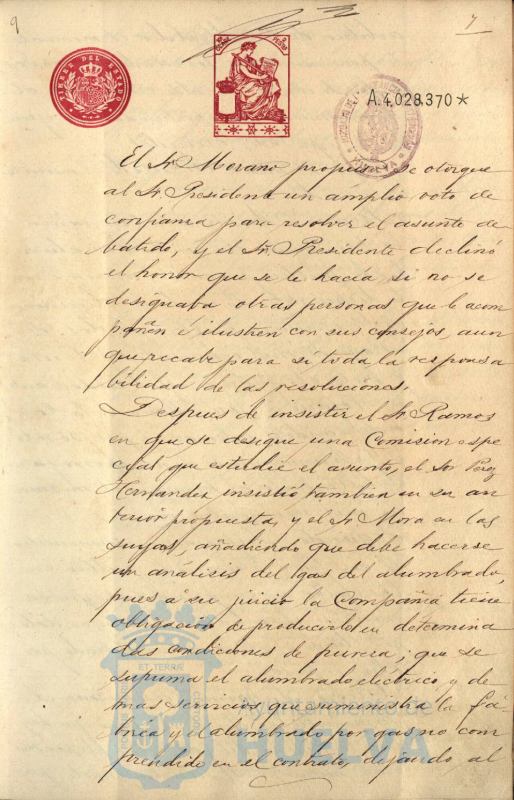 9
7
TIMBRE DEL ESTADO
A.4,028,370*
HUELVA
El Sr Morano propuso se otorgue
al Sr Presidente un ámplio voto de
confianza para resolver el asunto de
batido, y el Sr. Presidente declinó
el honor que se le hacía si no se
designaba otras personas que le acom
pañen é ilustren con sus consejos, aun
que recabe para sí toda la responsa
bilidad de las resoluciones.
Despues de insistir el Sr Ramos
en que se designe una Comision espe
cial que estudie el asunto, el Sor Perez
Hernandez insistió tambien en su an
terior propuesta, y el Sr Mora en las
suyas, añadiendo que debe hacerse
un análisis del gas del alumbrado,
pues a su juicio la Compañia tiene
obligacion de producirlo en determina
das condiciones de pureza; que se
suprima el alumbrado eléctrico y de
mas servicios que suministra la fá
brica y el alumbrado por gas no com
prendido en el contrato, dejando al
ET TERRA
Ayuntamiento de
HUELVA